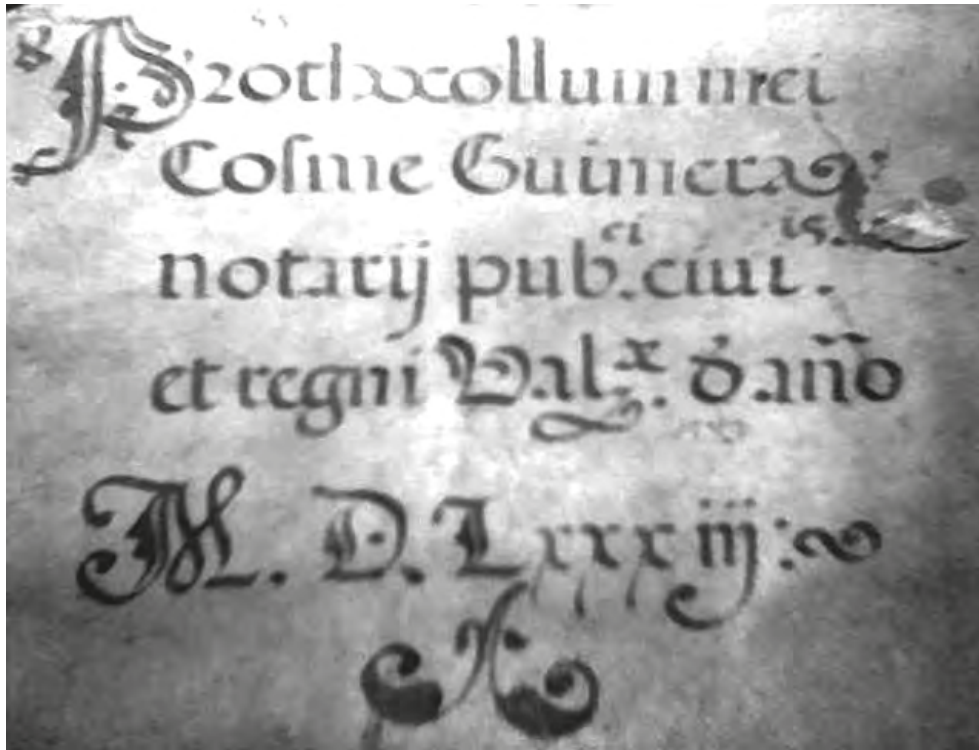 Prothocollum mei
Cosme Guimera
notarij pub.ci ciuit.is
et regni Val.x d anño
M. D. Lxxxiij: